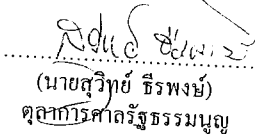 (นายสุวิทย์ ธีรพงษ์)
ตุลาการศาลรัฐธรรมนูญ